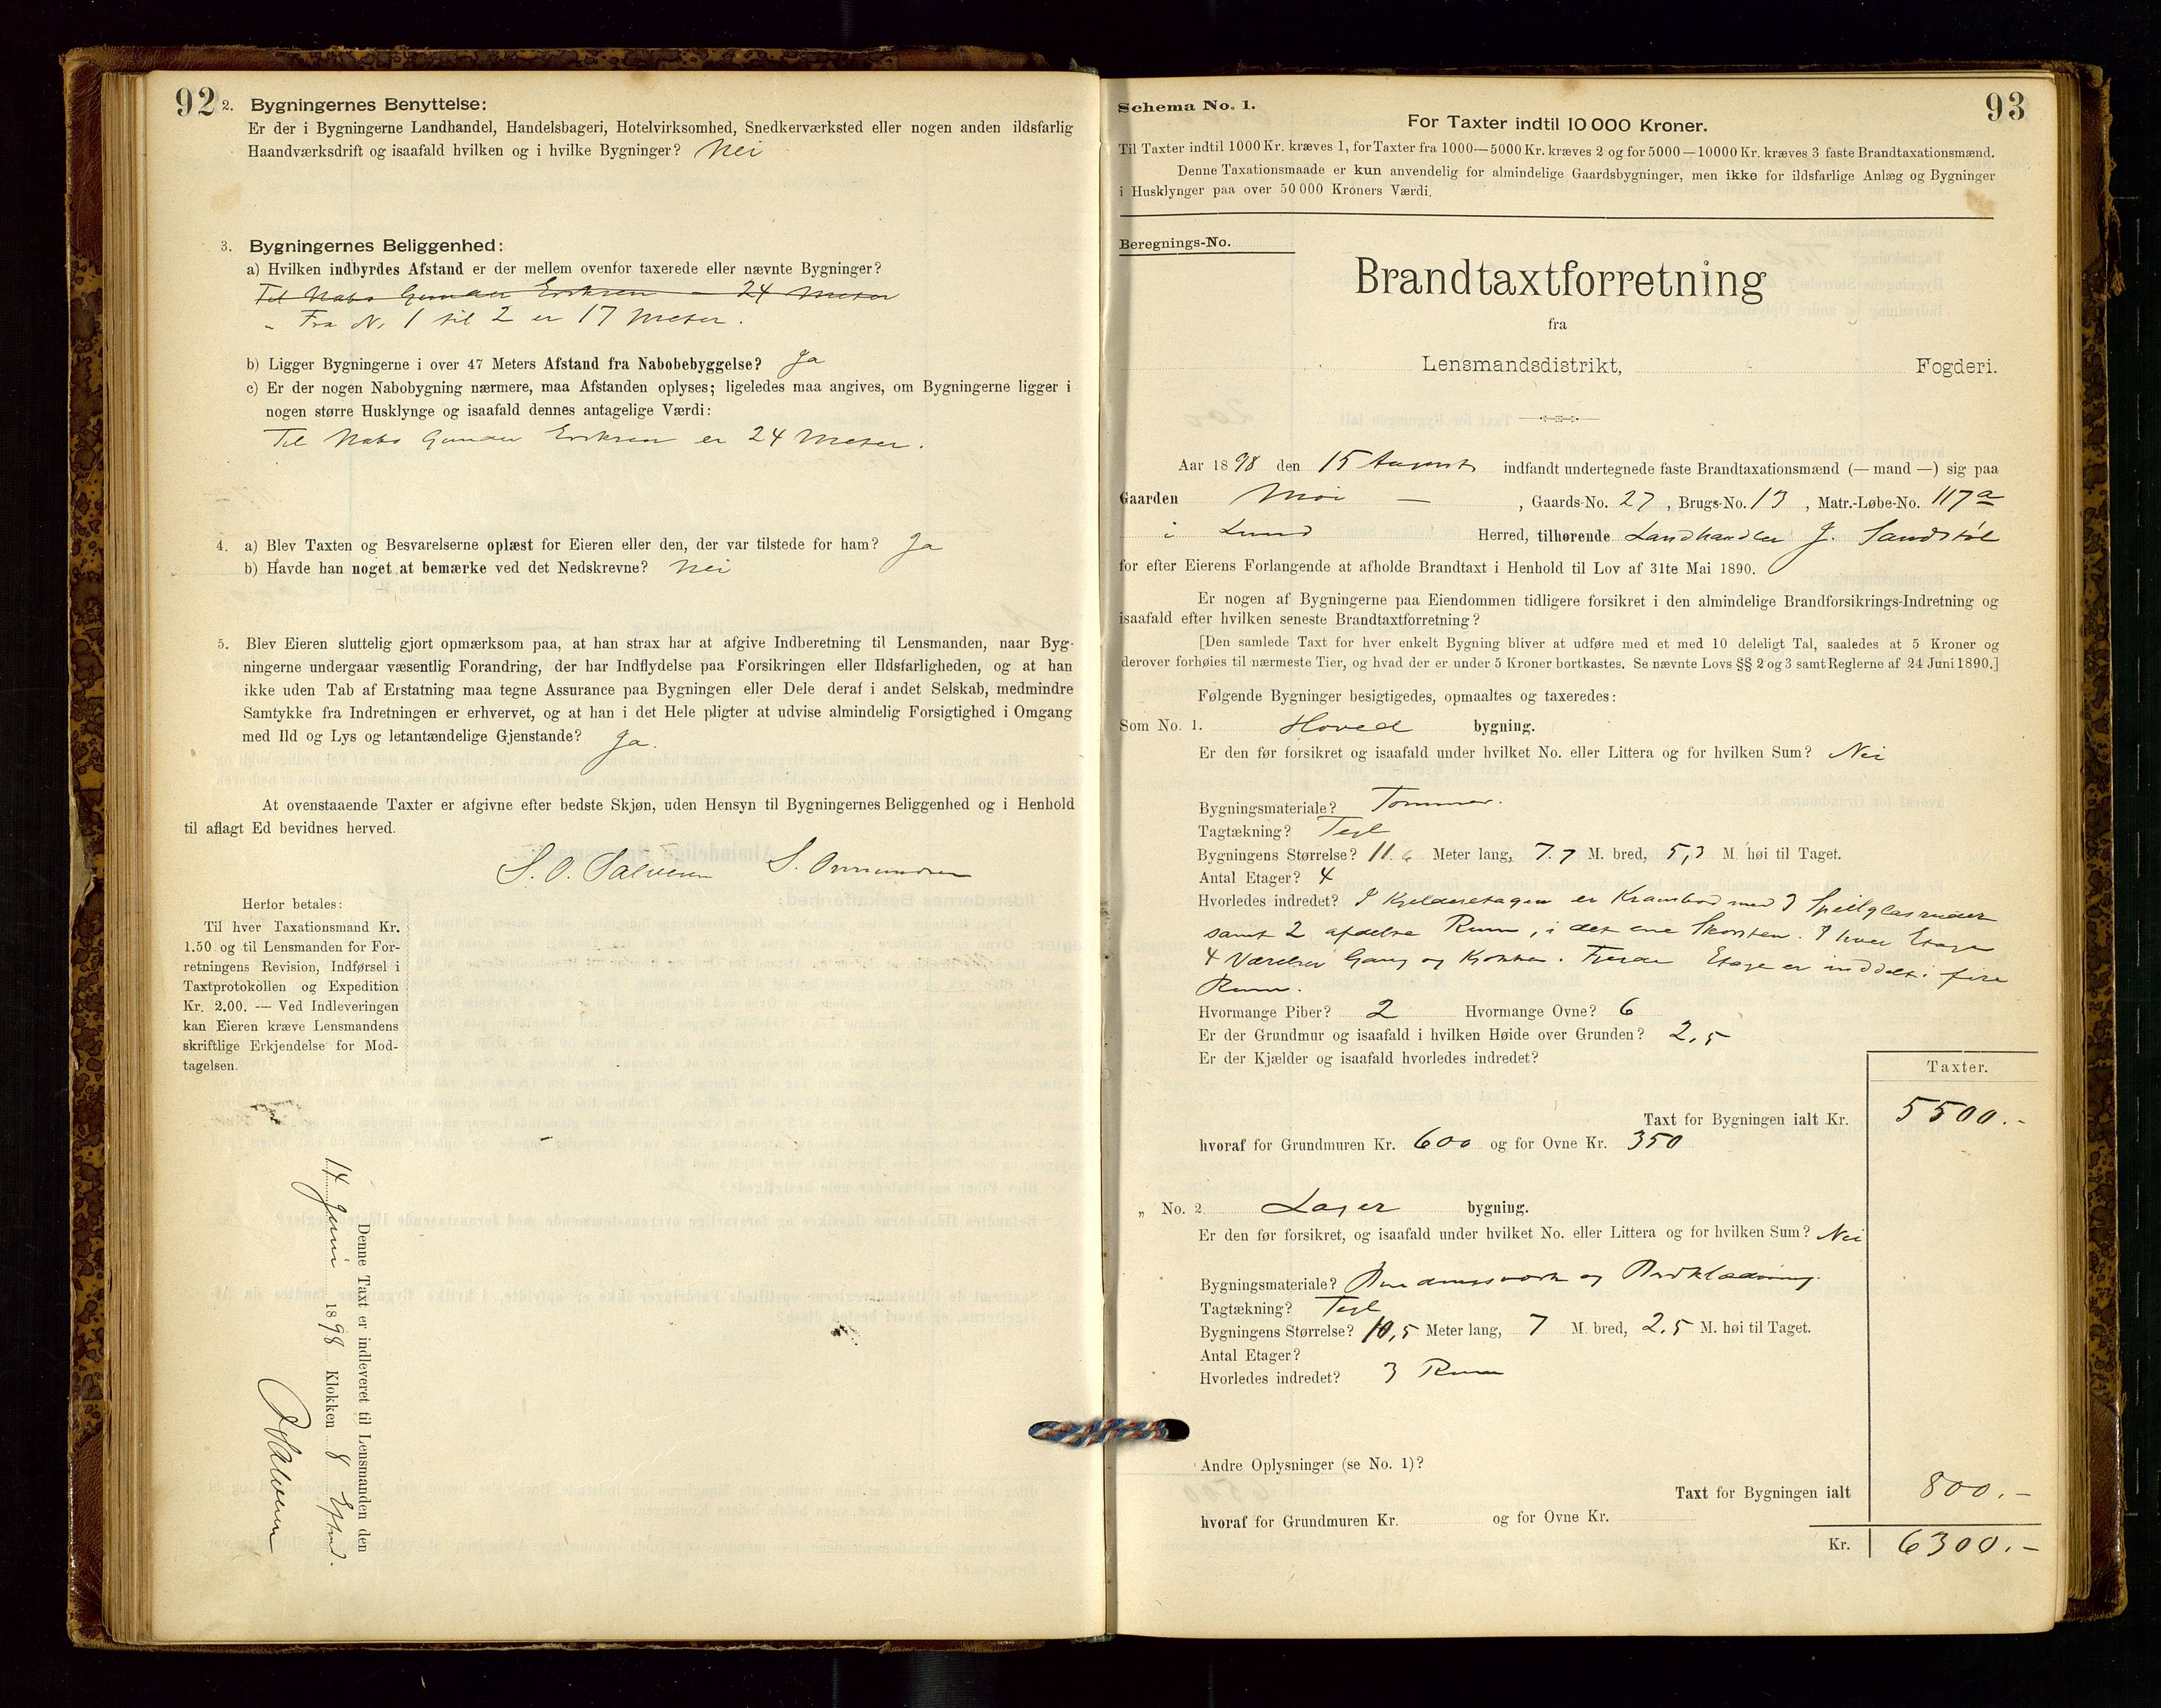 92
2. Bygningernes Benyttelse:
Er der i Bygningerne Landhandel, Handelsbageri, Hotelvirksomhed, Snedkerværksted eller nogen anden ildsfarlig
Haandværksdrift og isaafald hvilken og i hvilke Bygninger? Nei
3. Bygningernes Beliggenhed:
a) Hvilken indbyrdes Afstand er der mellem ovenfor taxerede eller nævnte Bygninger?
Til Nabo Gunder Eriksen – 24 Meter
„ Fra No 1 til 2 er 17 Meter.
b) Ligger Bygningerne i over 47 Meters Afstand fra Nabobebyggelse? Ja
c) Er der nogen Nabobygning nærmere, maa Afstanden oplyses; ligeledes maa angives, om Bygningerne ligger i
nogen større Husklynge og isaafald dennes antagelige Værdi:
Til Nabo Gunder Eriksen er 24 Meter.
4. a) Blev Taxten og Besvarelserne oplæst for Eieren eller den, der var tilstede for ham? Ja
b) Havde han noget at bemærke ved det Nedskrevne? Nei
5. Blev Eieren sluttelig gjort opmærksom paa, at han strax har at afgive Indberetning til Lensmanden, naar Byg-
ningerne undergaar væsentlig Forandring, der har Indflydelse paa Forsikringen eller Ildsfarligheden, og at han
ikke uden Tab af Erstatning maa tegne Assurance paa Bygningen eller Dele deraf i andet Selskab, medmindre
Samtykke fra Indretningen er erhvervet, og at han i det Hele pligter at udvise almindelig Forsigtighed i Omgang
med Ild og Lys og letantændelige Gjenstande? Ja.
At ovenstaaende Taxter er afgivne efter bedste Skjøn, uden Hensyn til Bygningernes Beliggenhed og i Henhold
til aflagt Ed bevidnes herved.
S. O. Salvesen S. Osmundsen
Herfor betales:
Til hver Taxationsmand Kr.
1.50 og til Lensmanden for For-
retningens Revision, Indførsel i
Taxtprotokollen og Expedition
Kr. 2.00. — Ved Indleveringen
kan Eieren kræve Lensmandens
skriftlige Erkjendelse for Mod-
tagelsen.
Denne Taxt er indleveret til Lensmanden den
14 Juni 1898 Klokken 8 Eftmd.
Salvesen
93
Schema No. 1.
For Taxter indtil 10 000 Kroner.
Til Taxter indtil 1000 Kr. kræves 1, for Taxter fra 1000—5000 Kr. kræves 2 og for 5000—10000 Kr. kræves 3 faste Brandtaxationsmænd.
Denne Taxationsmaade er kun anvendelig for almindelige Gaardsbygninger, men ikke for ildsfarlige Anlæg og Bygninger
i Husklynger paa over 50 000 Kroners Værdi.
Beregnings-No.
Brandtaxtforretning
fra
Lensmandsdistrikt, Fogderi.
Aar 1898 den 15 August indfandt undertegnede faste Brandtaxationsmænd (— mand —) sig paa
Gaarden Moi – , Gaards-No. 27, Brugs-No. 13, Matr.-Løbe-No. 117a
i Lund Herred, tilhørende Landhandler J. Sandstøl
for efter Eierens Forlangende at afholde Brandtaxt i Henhold til Lov af 31te Mai 1890.
Er nogen af Bygningerne paa Eiendommen tidligere forsikret i den almindelige Brandforsikrings-Indretning og
isaafald efter hvilken seneste Brandtaxtforretning?
[Den samlede Taxt for hver enkelt Bygning bliver at udføre med et med 10 deleligt Tal, saaledes at 5 Kroner og
derover forhøies til nærmeste Tier, og hvad der er under 5 Kroner bortkastes. Se nævnte Lovs §§ 2 og 3 samt Reglerne af 24 Juni 1890.]
Følgende Bygninger besigtigedes, opmaaltes og taxeredes:
Som No. 1. Hoved bygning.
Er den før forsikret og isaafald under hvilket No. eller Littera og for hvilken Sum? Nei
Bygningsmateriale? Tømmer.
Tagtækning? Tegl
Bygningens Størrelse? 11.6 Meter lang, 7.7 M. bred, 5,3 M. høi til Taget.
Antal Etager? 4
Hvorledes indredet? I Kjelderetagen er Krambod med 3 Speilglasruder
samt 2 afdelte Rum, i det ene Skorsten. I hver Etage
4 Værelser Gang og Kokken. Fjerde Etage er inddelt i fire
Rum.
Hvormange Piber? 2 Hvormange Ovne? 6
Er der Grundmur og isaafald i hvilken Høide over Grunden? 2,5
Er der Kjælder og isaafald hvorledes indredet?
Taxter.
Taxt for Bygningen ialt Kr. 5500.-
hvoraf for Grundmuren Kr. 600 og for Ovne Kr. 350
„ No. 2 Lager bygning.
Er den før forsikret, og isaafald under hvilket No. eller Littera og for hvilken Sum? Nei
Bygningsmateriale? Bindingsværk og Bordklædning.
Tagtækning? Tegl
Bygningens Størrelse? 10,5 Meter lang, 7 M. bred, 2.5 M. høi til Taget.
Antal Etager?
Hvorledes indredet? 3 Rum
Andre Oplysninger (se No. 1)?
Taxt for Bygningen ialt 800.-
hvoraf for Grundmuren Kr. og for Ovne Kr.
Kr. 6300.-